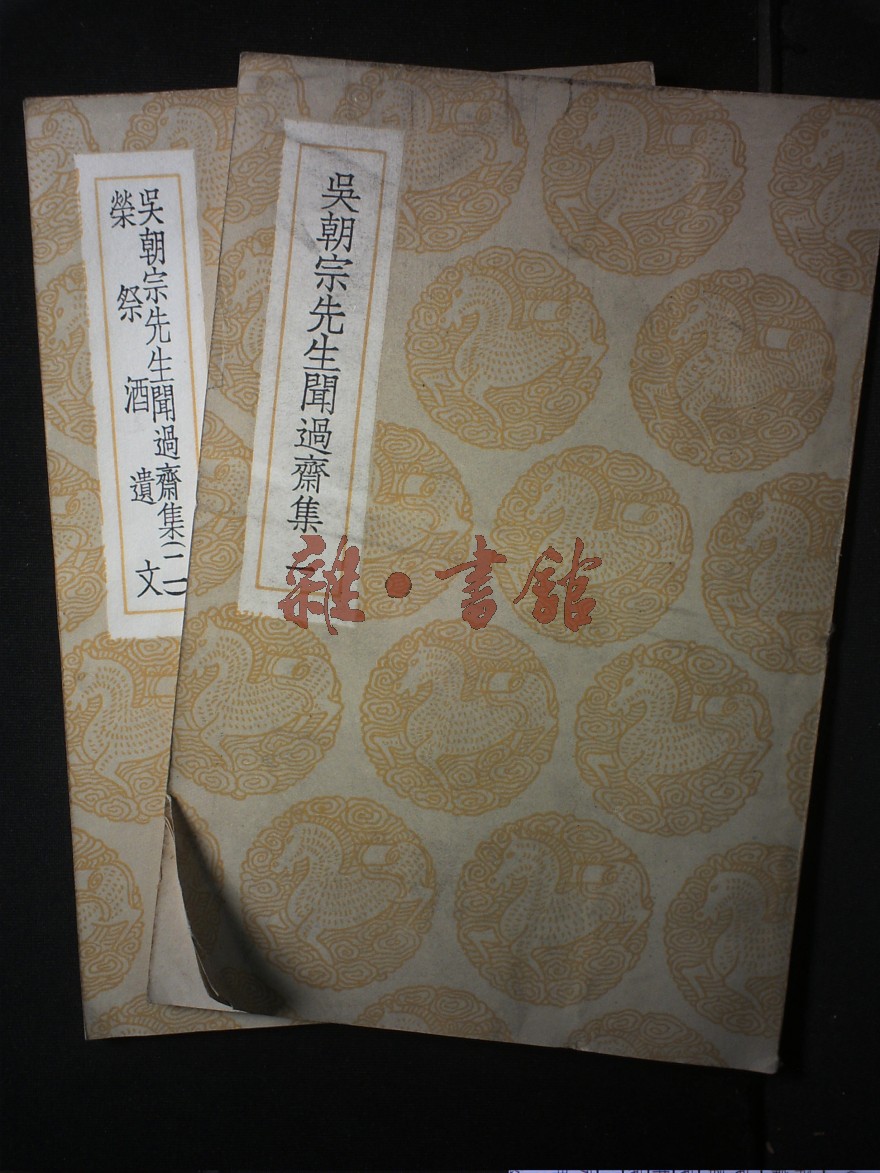 吳朝宗先生聞過齋集一
吳朝宗先生聞過齋集(二)
榮祭酒遺文
雜·書館